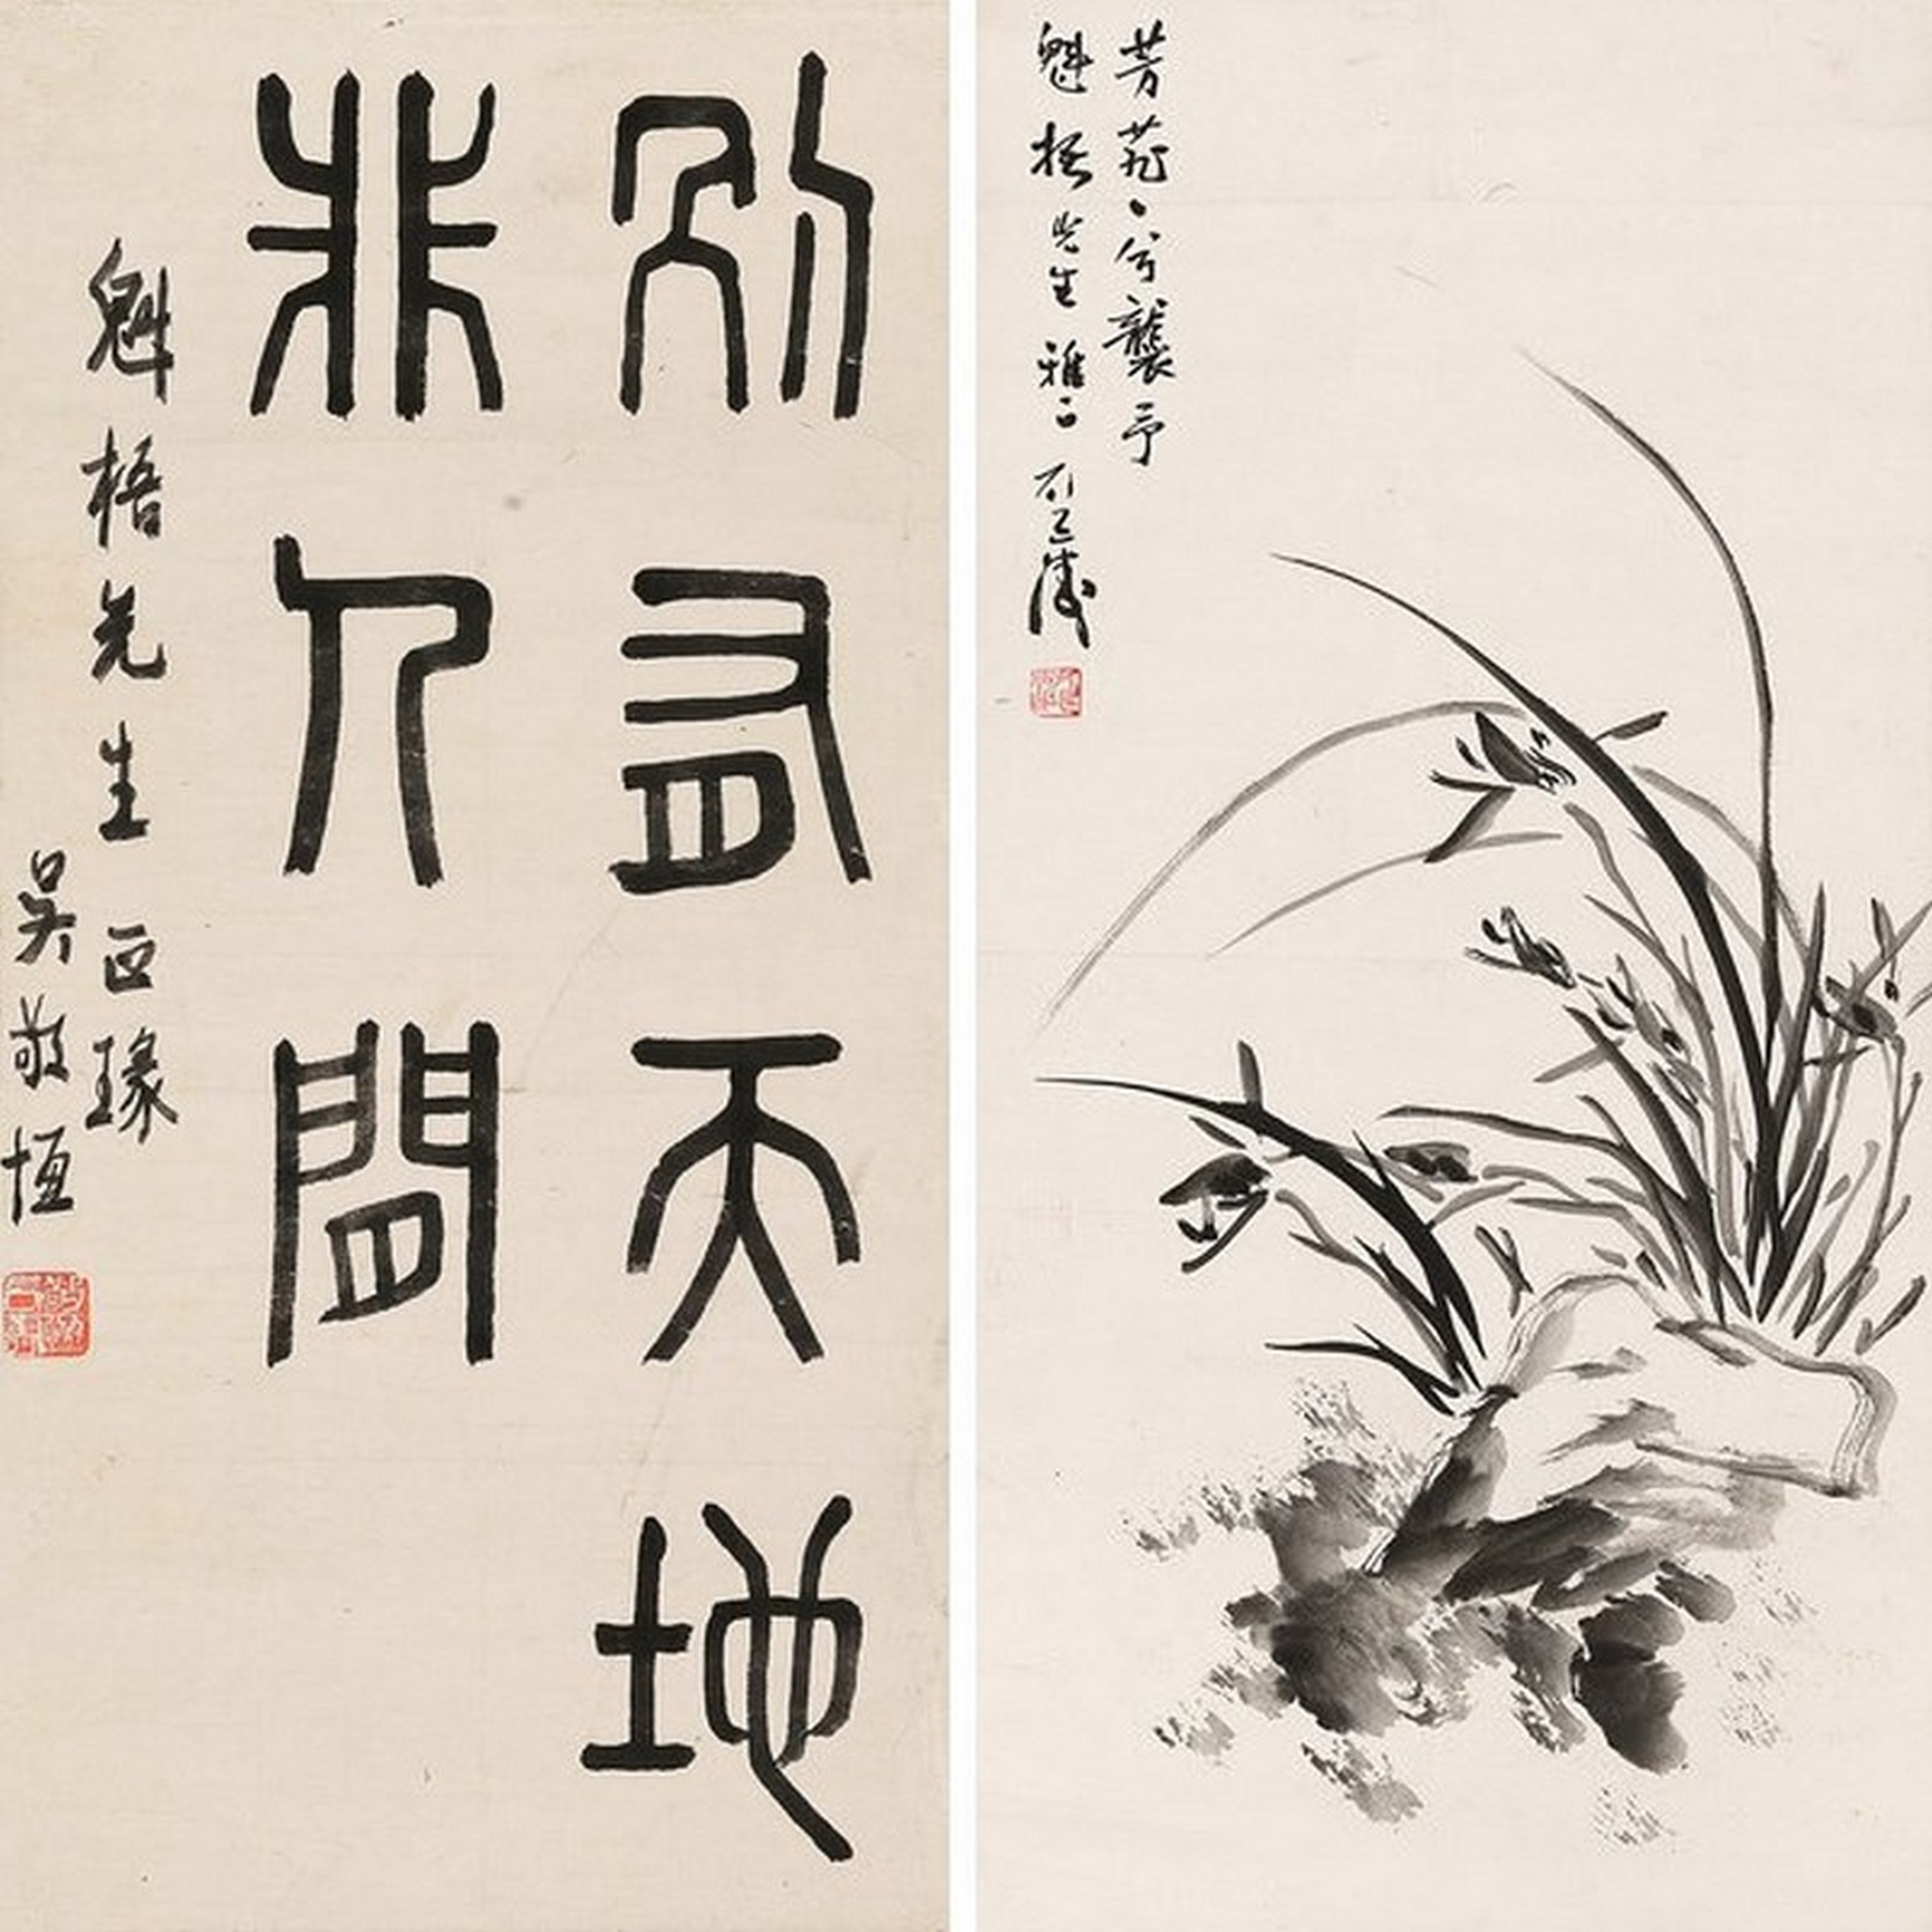 別有天地
非人間
魁梧先生正瑑
吴敬恒
芳菲々兮襲予
魁梧先生雅正